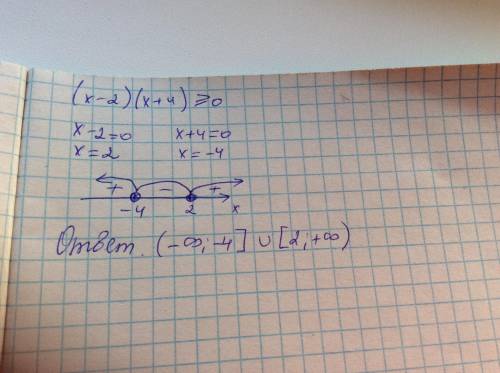 (x-2)(x+4)≥0
x-2=0 x+4=0
x=2 x=-4
+ - +
-4 2 x
Ответ. (-∞; -4] ∪ [2; +∞)